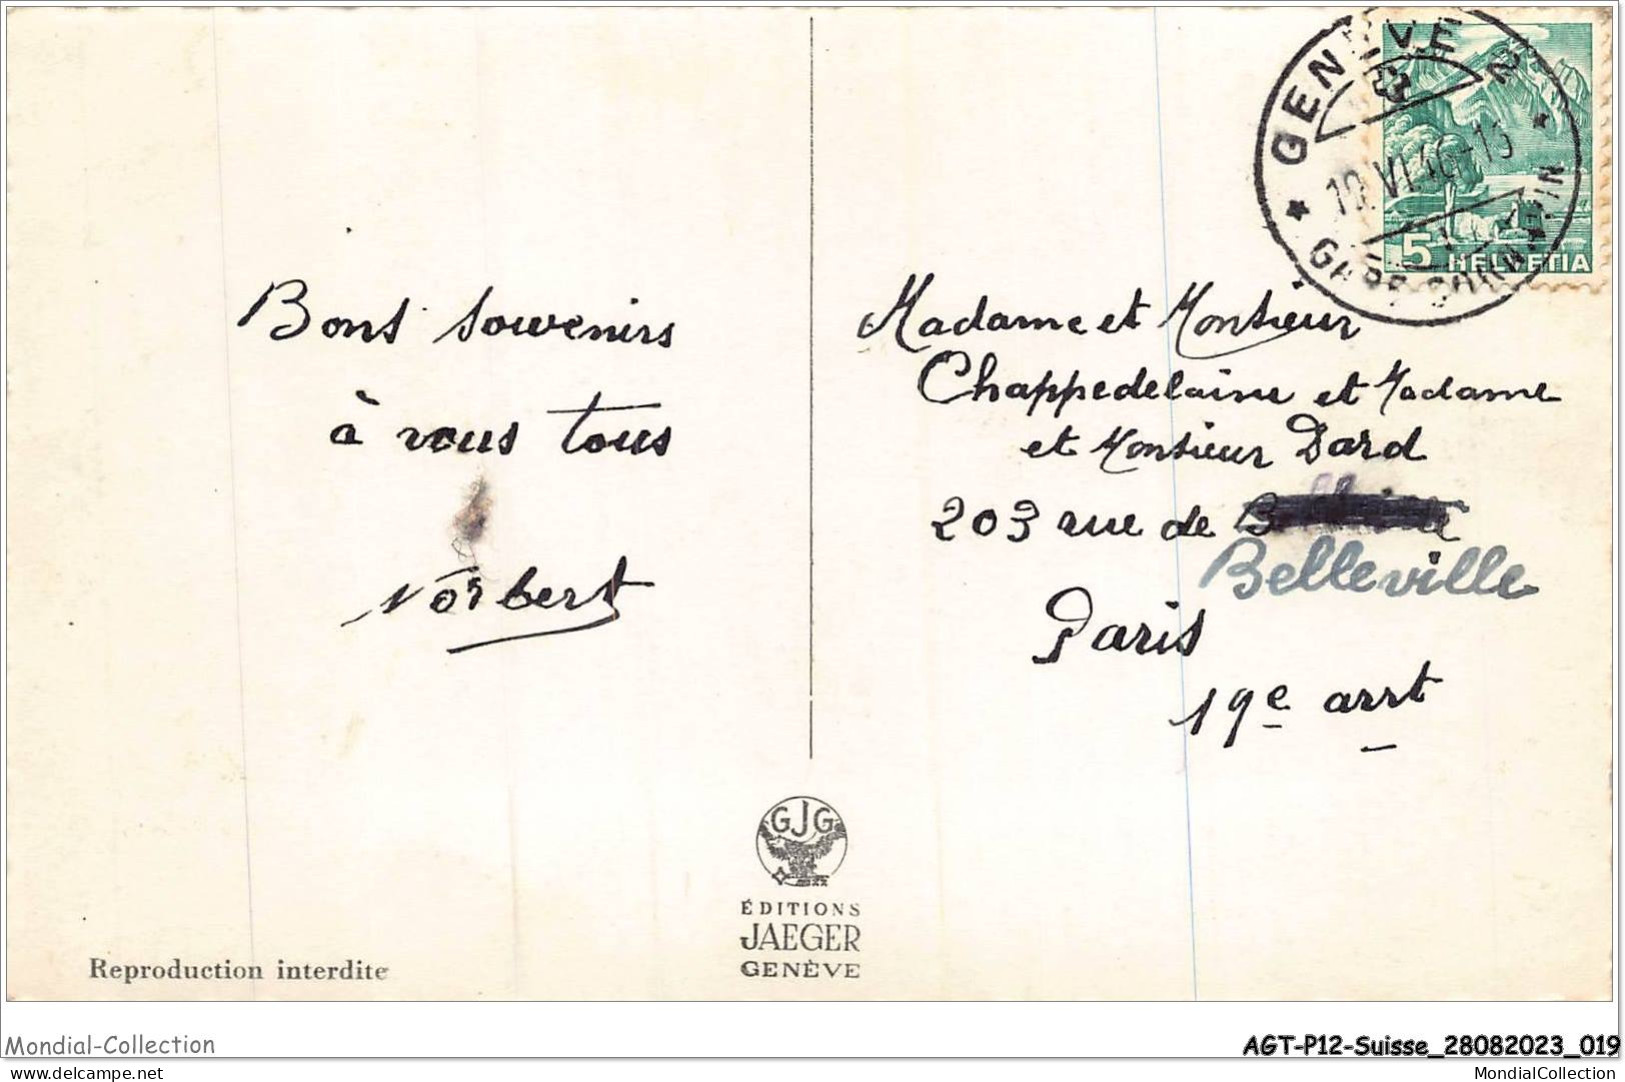 Bons souvenirs
à vous tous
Norbert
GENÈVE 2
VI.46-13
5 HELVETIA
Madame et Monsieur
Chappedelaine et Madame
et Monsieur Dard
203 rue de
Belleville
Paris
19e arrt
GJG
ÉDITIONS
JAEGER
GENÈVE
Reproduction interdite
Mondial-Collection
AGT-P12-Suisse_28082023_019
MondialCollection